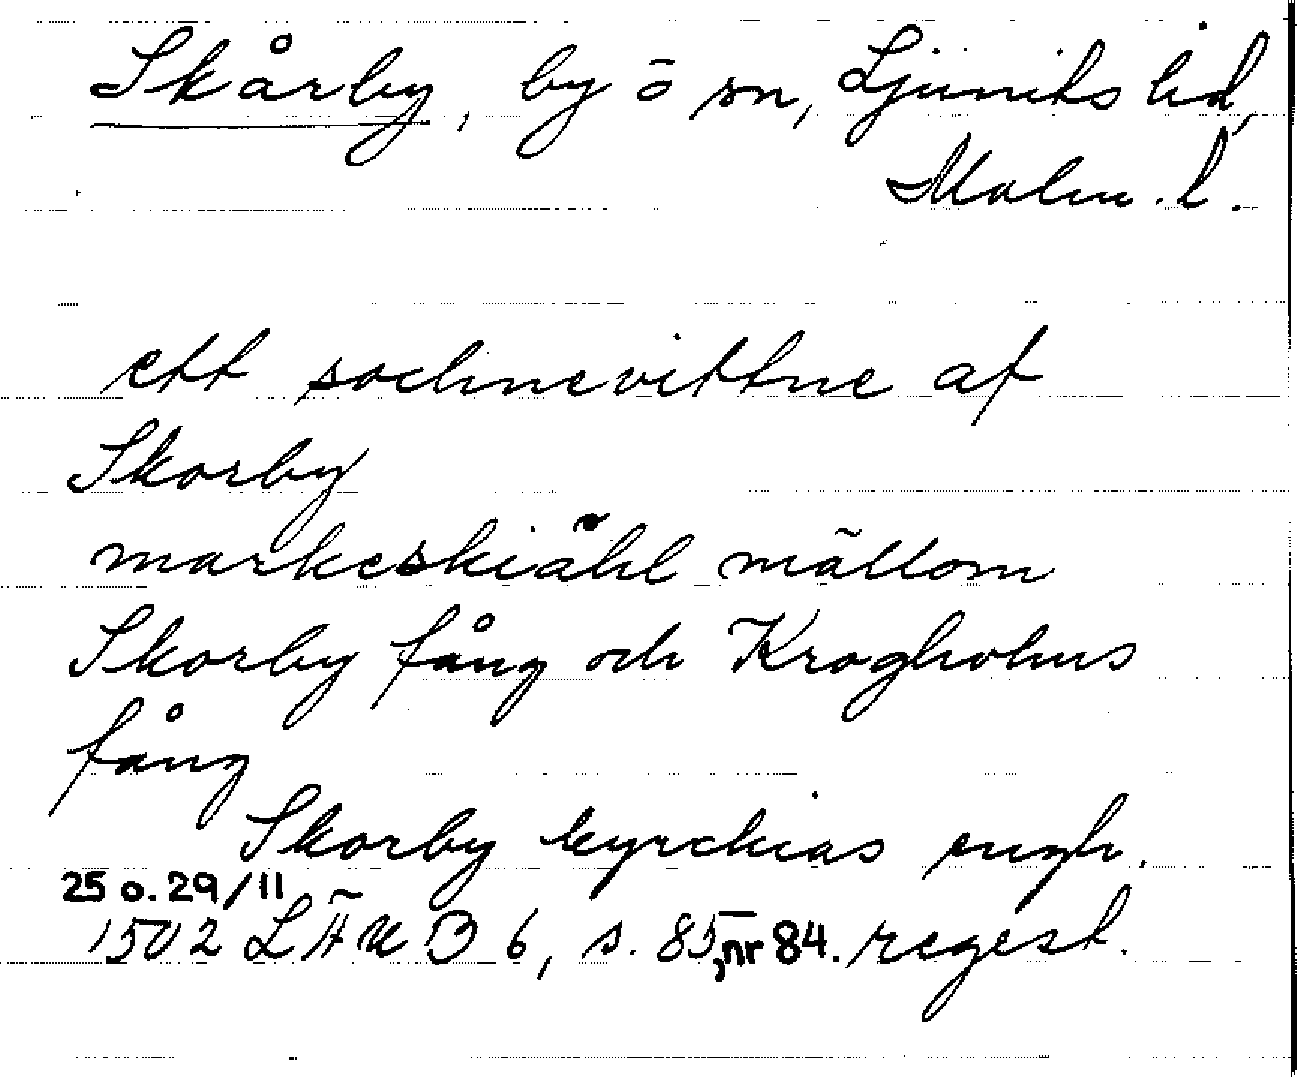 Skårby, by ō sn, Ljunits hd,
Malm. l.
ett sochnevittne af
Skorby
markeskiähl mällom
Skorby fång och Kroghohus
fång
Skorby kyrckias engh.
25 o. 29/11
1502 LÄU B 6, s. 85, nr 84. regest.